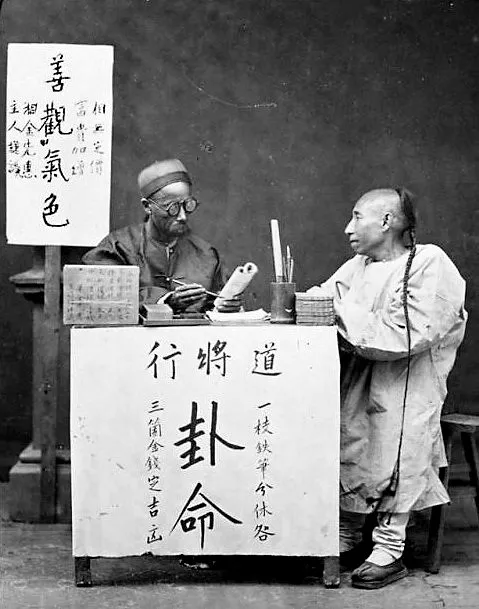 相無定價
富貴加增
善觀氣色
相金先惠
主人謹
道將行
一枝鉄筆分休咎
卦命
三箇金錢定吉凶